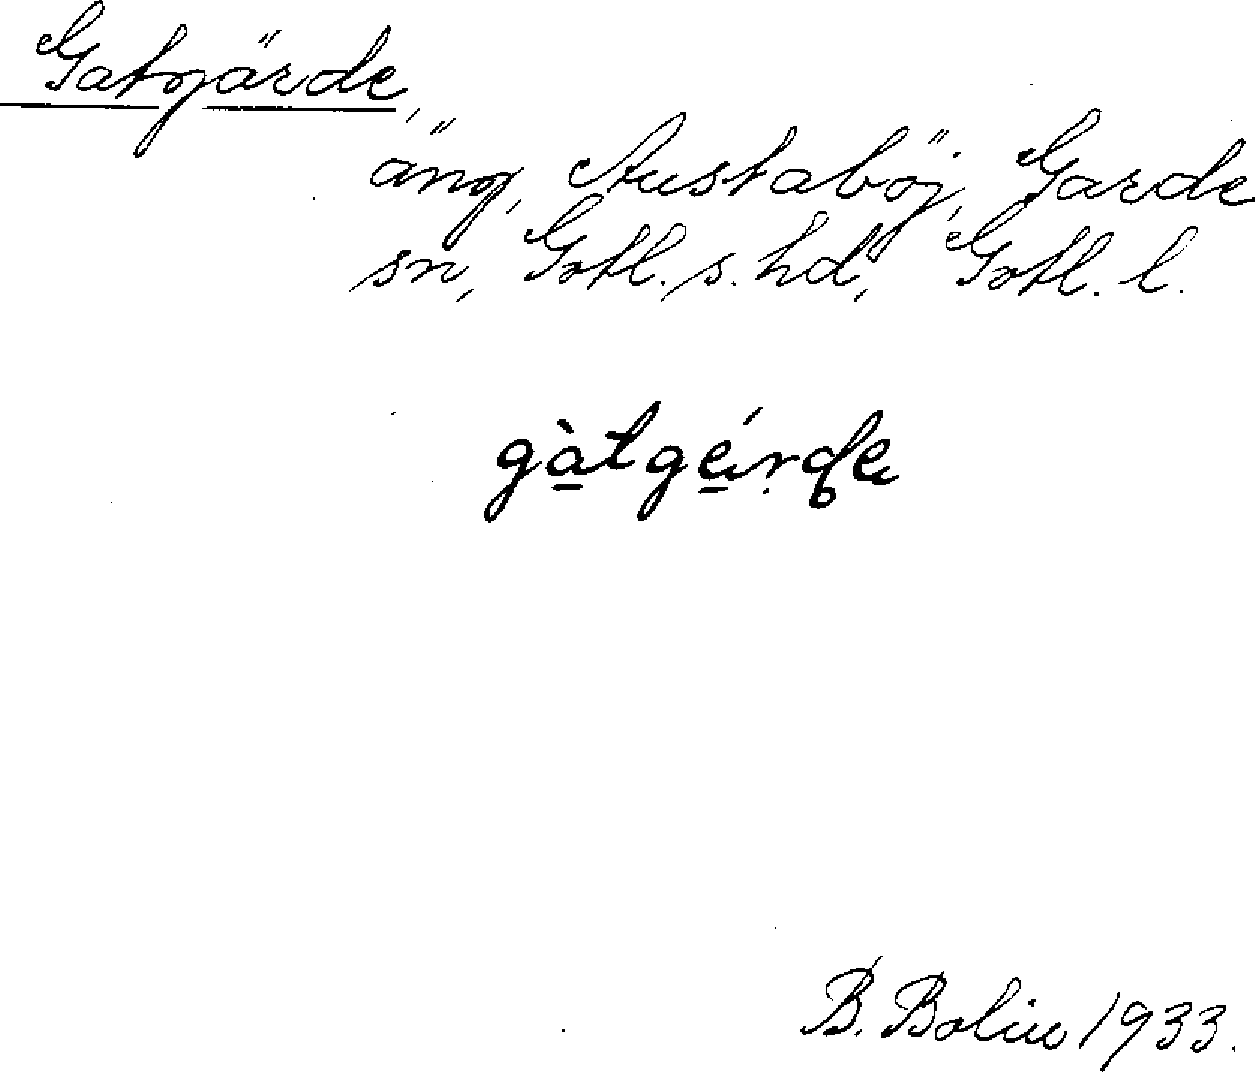 Gatgärde,
äng, Austaböj, Garde
sn, Gotl. s. hd, Gotl. l.
gàtgérde
B. Bolin 1933.